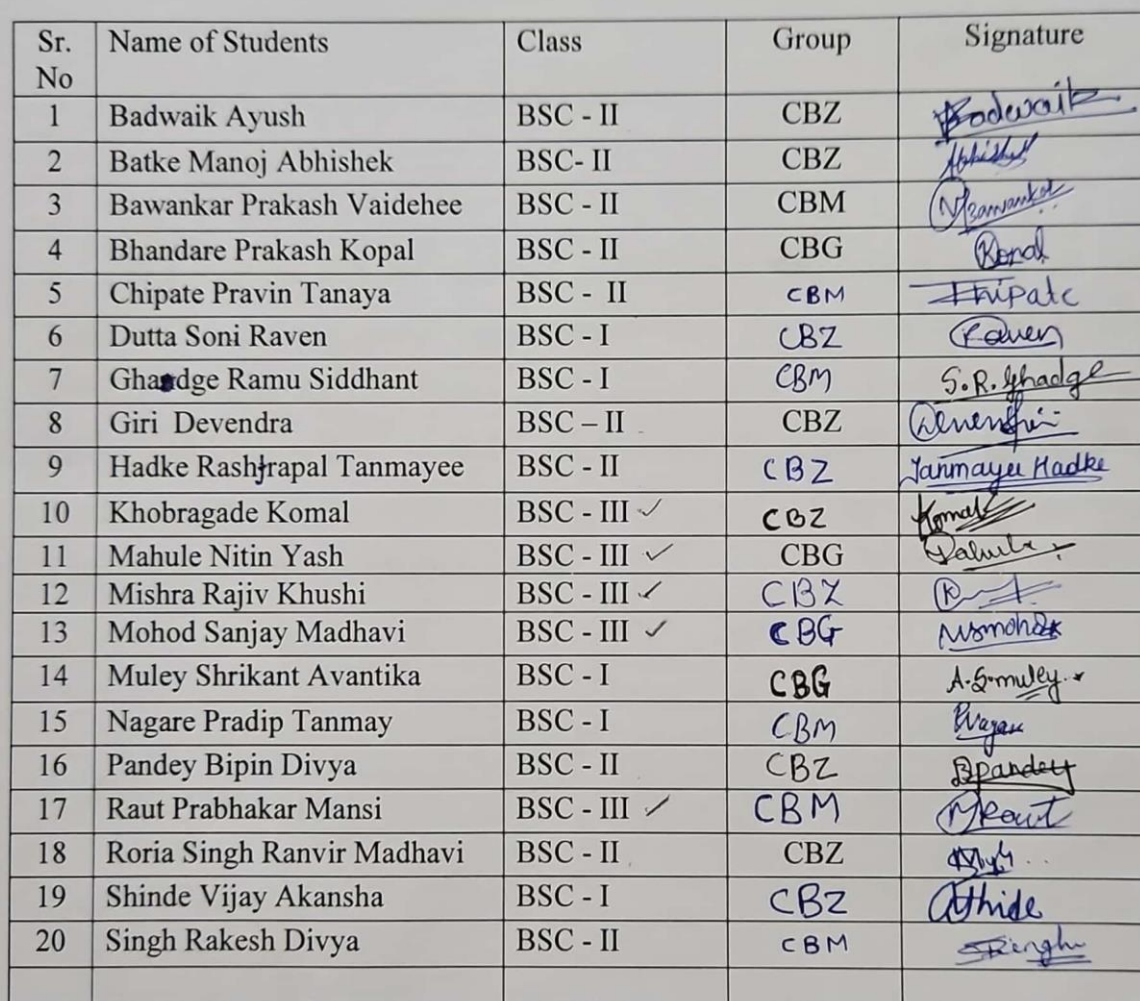 Sr. No Name of Students Class Group Signature
1 Badwaik Ayush BSC - II CBZ Badwaik
2 Batke Manoj Abhishek BSC- II CBZ Abhishek
3 Bawankar Prakash Vaidehee BSC - II CBM VBawankar
4 Bhandare Prakash Kopal BSC - II CBG Kopal
5 Chipate Pravin Tanaya BSC - II CBM
6 Dutta Soni Raven BSC - I CBZ Raven
7 Ghadge Ramu Siddhant BSC - I CBM S.R.Ghadge
8 Giri Devendra BSC – II CBZ
9 Hadke Rashtrapal Tanmayee BSC - II CBZ Tanmayee Hadke
10 Khobragade Komal BSC - III ✓ CBZ Komal
11 Mahule Nitin Yash BSC - III ✓ CBG
12 Mishra Rajiv Khushi BSC - III ✓ CBZ
13 Mohod Sanjay Madhavi BSC - III ✓ CBG
14 Muley Shrikant Avantika BSC - I CBG A.S.muley
15 Nagare Pradip Tanmay BSC - I CBM
16 Pandey Bipin Divya BSC - II CBZ Dpandey
17 Raut Prabhakar Mansi BSC - III ✓ CBM MRaut
18 Roria Singh Ranvir Madhavi BSC - II CBZ
19 Shinde Vijay Akansha BSC - I CBZ
20 Singh Rakesh Divya BSC - II CBM